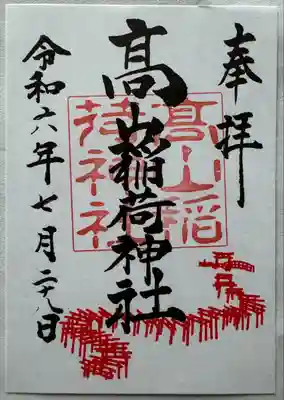 奉拝
髙山稲荷神社
髙山稲
荷神社
令和六年七月二十九日